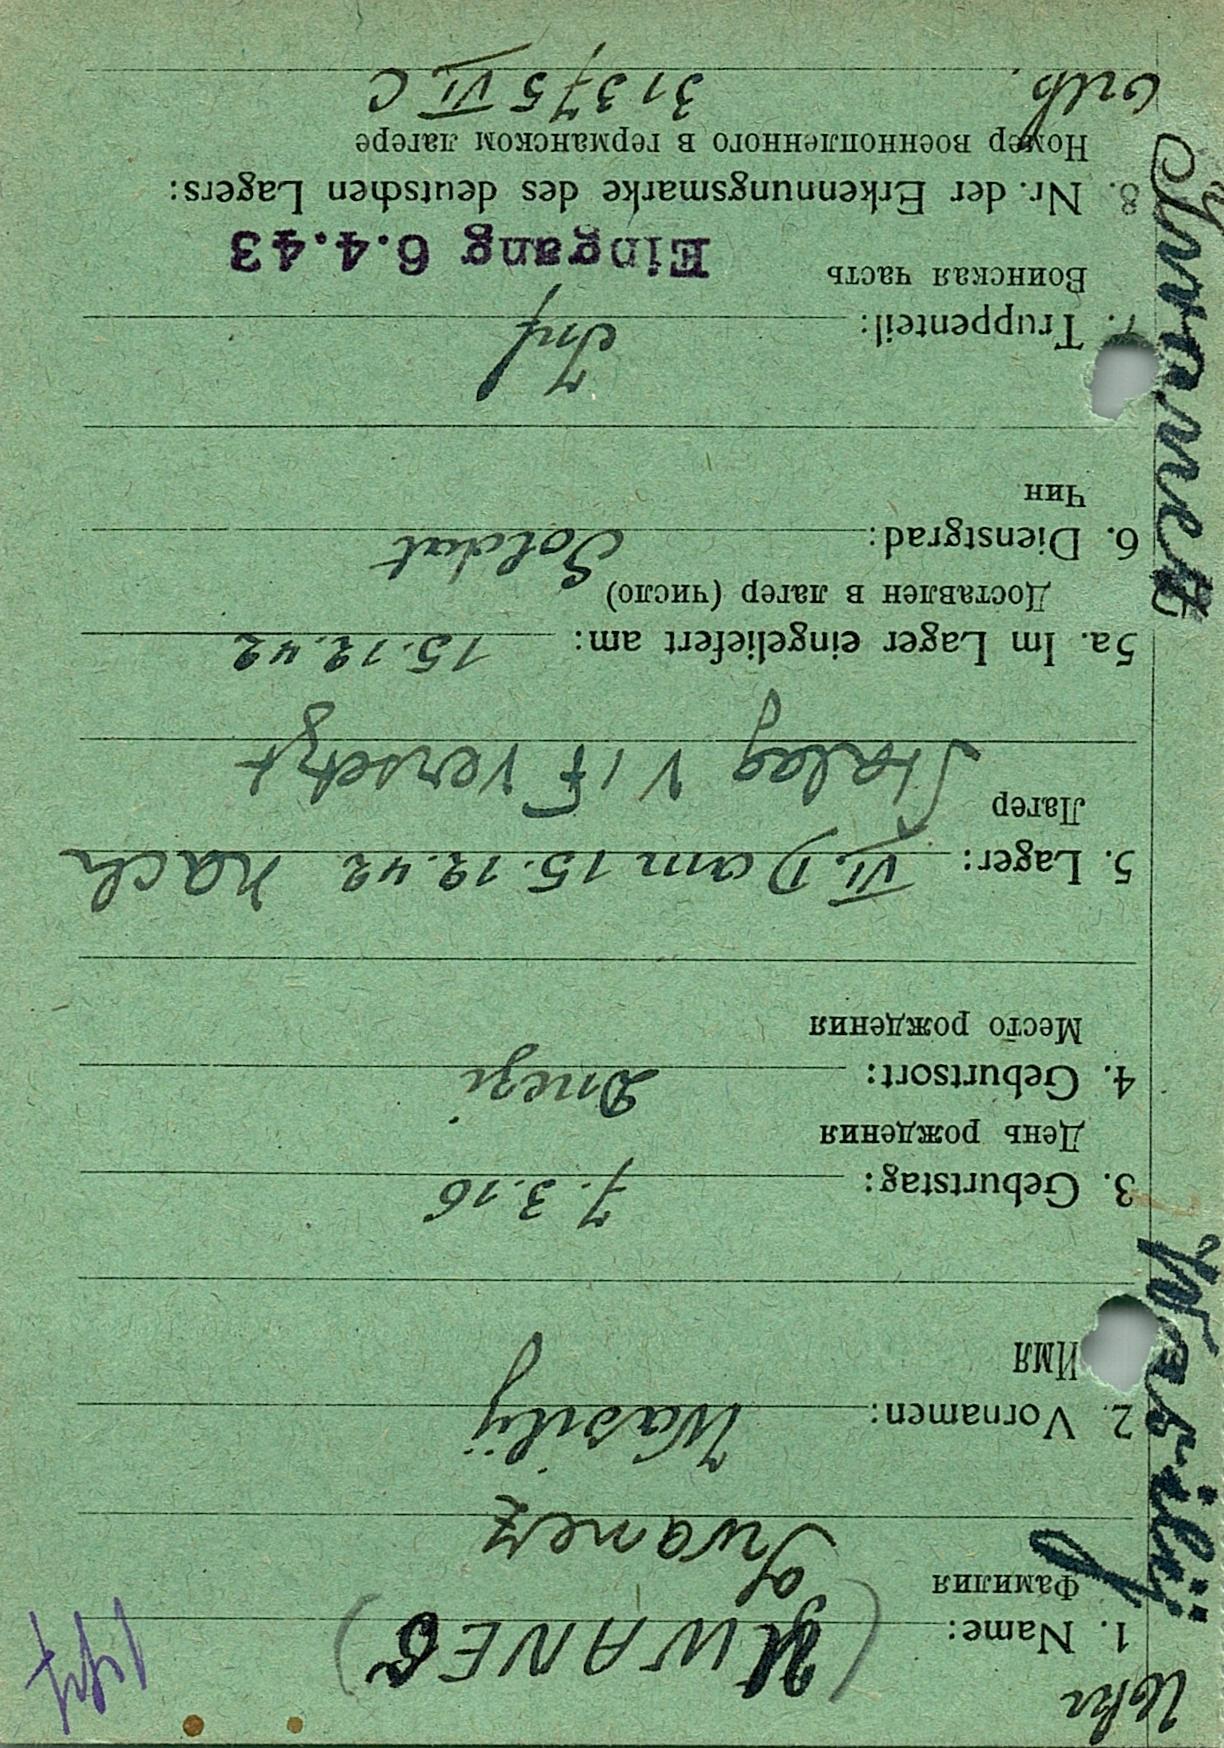 Ukr
(UWANEC)
1. Name:
Фамилия
Iwanez
2. Vornamen: Wasilij
Имя
3. Geburtstag: 7.3.16
День рождения
4. Geburtsort: Dnezi
Место рождения
5. Lager: VI. D am 15.12.42 nach
Лагер
Stalag VI F versetzt
5a. Im Lager eingeliefert am: 15.12.42
Доставлен в лагер (число)
6. Dienstgrad: Soldat
Чин
7. Truppenteil: Inf
Воинская часть
Eingang 6.4.43
8. Nr. der Erkennungsmarke des deutschen Lagers:
Номер военнопленного в германском лагере
31375 VI. C
Wasilij